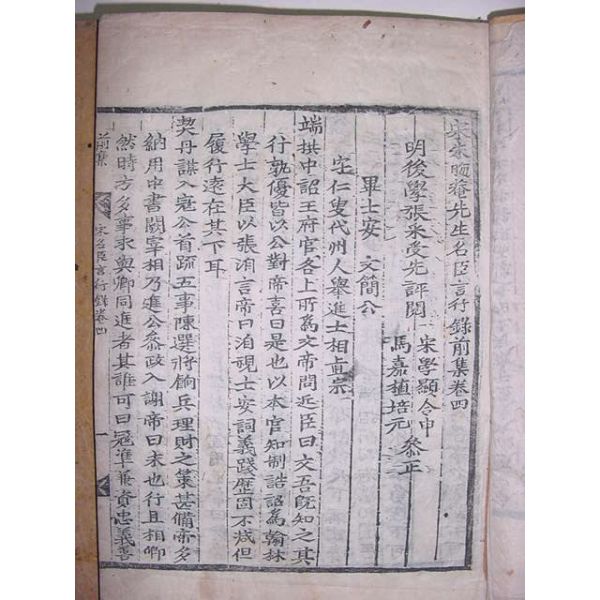 宋朱晦菴先生名臣言行錄前集卷四
明後學張采受先評閱 宋學顯令申
馬嘉植培元 叅正
畢士安 文簡公
字仁叟代州人舉進士相眞宗
端拱中詔王府官各上所爲文帝問近臣曰文吾旣知之其
行孰優皆以公對帝喜曰是也以本官知制誥詔爲翰林
學士大臣以張洎言帝曰洎視士安詞義踐歷固不减但
履行遠在其下耳
契丹謀入寇公首疏五事陳選將餉兵理財之策甚備帝多
納用中書闕宰相乃進公叅政入謝帝曰未也行且相卿
然時方多事求與卿同進者其誰可曰寇準兼資忠義善
前集
宋名臣言行錄卷四